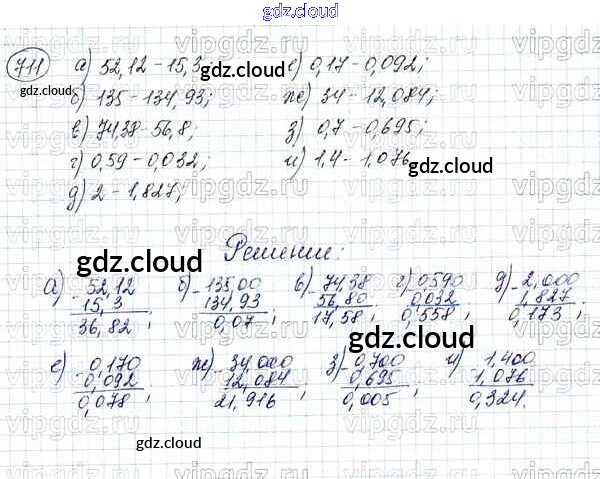 gdz.cloud
711 а) 52,12 - 15,3 е) 0,17 - 0,092;
gdz.cloud
gdz.cloud
б) 135 - 134,93; ж) 34 - 12,084;
в) 74,38 - 56,8; з) 0,7 - 0,695;
г) 0,59 - 0,032; и) 1,4 - 1,076
gdz.cloud
д) 2 - 1,827;
Решение:
gdz.cloud
а) - 52,12 б) - 135,00 в) - 74,38 г) - 0,590 д) - 2,000
15,3 134,93 56,80 0,032 1,827
36,82; 0,07; 17,58; 0,558; 0,173;
gdz.cloud
е) - 0,170 ж) - 34,000 з) - 0,700 и) - 1,400
0,092 12,084 0,695 1,076
0,078; 21,916 ; 0,005; 0,324.
gdz.cloud